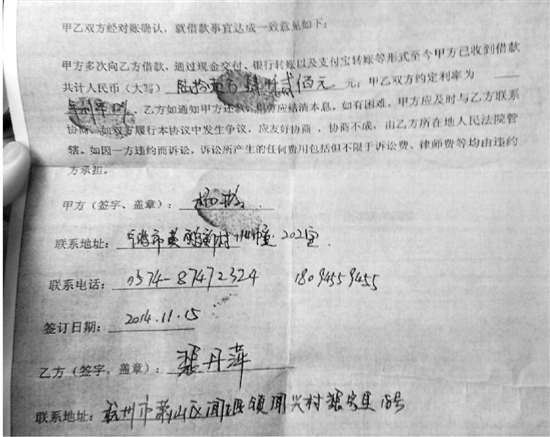 甲乙双方经对账确认，就借款事宜达成一致意见如下：
甲方多次向乙方借款，通过现金交付、银行转账以及支付宝转账等形式至今甲方已收到借款
共计人民币（大写） 陆拾 万 肆仟贰佰元 元；甲乙双方约定利率为
年利率 ，乙方如通知甲方还款，甲方应结清本息。如有困难，甲方应及时与乙方联系
协商。如双方履行本协议中发生争议，应友好协商，协商不成，由乙方所在地人民法院管
辖。如因一方违约而诉讼，诉讼所产生的任何费用包括但不限于诉讼费、律师费等均由违约
方承担。
甲方（签字、盖章）： 杨
联系地址： 市黄 新村 202室
联系电话： 0574-87472324 18094559455
签订日期： 2014.11.15
乙方（签字、盖章）： 裴丹萍
联系地址： 杭州市萧山区闻堰镇闻兴村 18号